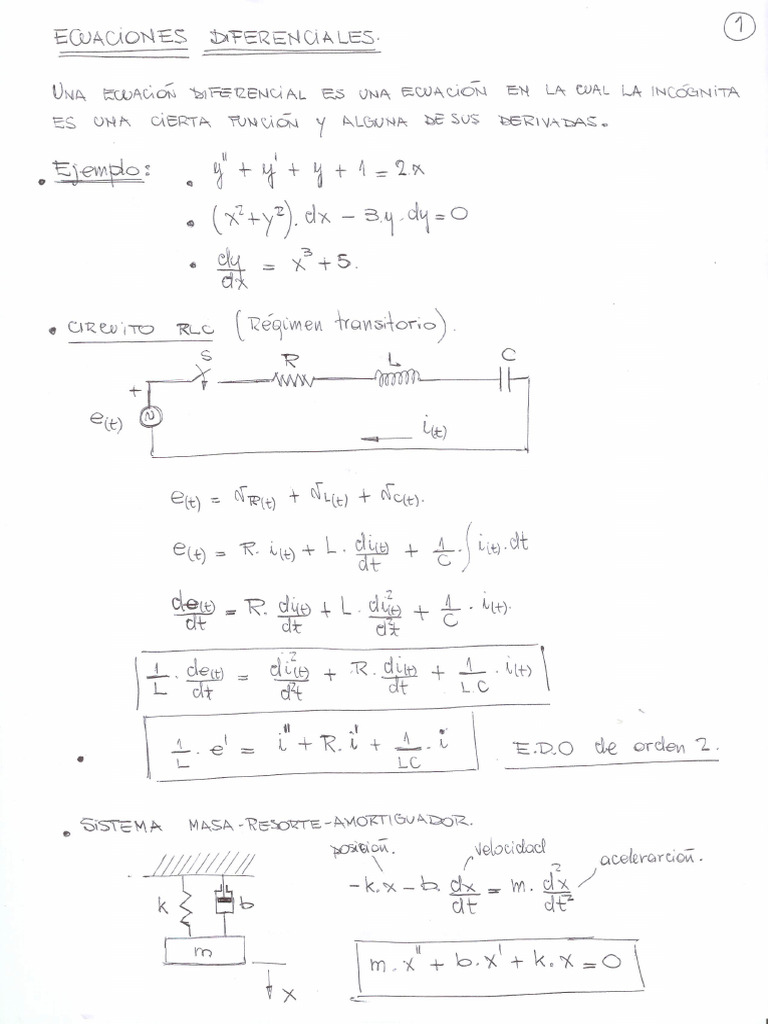 1
ECUACIONES DIFERENCIALES.
UNA ECUACIÓN DIFERENCIAL ES UNA ECUACIÓN EN LA CUAL LA INCÓGNITA
ES UNA CIERTA FUNCIÓN Y ALGUNA DE SUS DERIVADAS.
• Ejemplo: • y'' + y' + y + 1 = 2.x
• (x² + y²).dx − 3.y.dy = 0
• dy/dx = x³ + 5.
• CIRCUITO RLC (Régimen transitorio).
S R L C
+
e(t)
i(t)
e(t) = vR(t) + vL(t) + vC(t).
e(t) = R. i(t) + L. di(t)/dt + 1/C . ∫ i(t).dt
de(t)/dt = R. di(t)/dt + L. di²(t)/d²t + 1/C . i(t).
1/L . de(t)/dt = di²(t)/d²t + R. di(t)/dt + 1/LC . i(t)
• 1/L . e' = i'' + R.i' + 1/LC . i E.D.O de orden 2.
• SISTEMA MASA-RESORTE-AMORTIGUADOR.
posición. velocidad acelerarción.
−k.x − b. dx/dt = m. d²x/dt²
k b
m
m.x'' + b.x' + k.x = 0
x